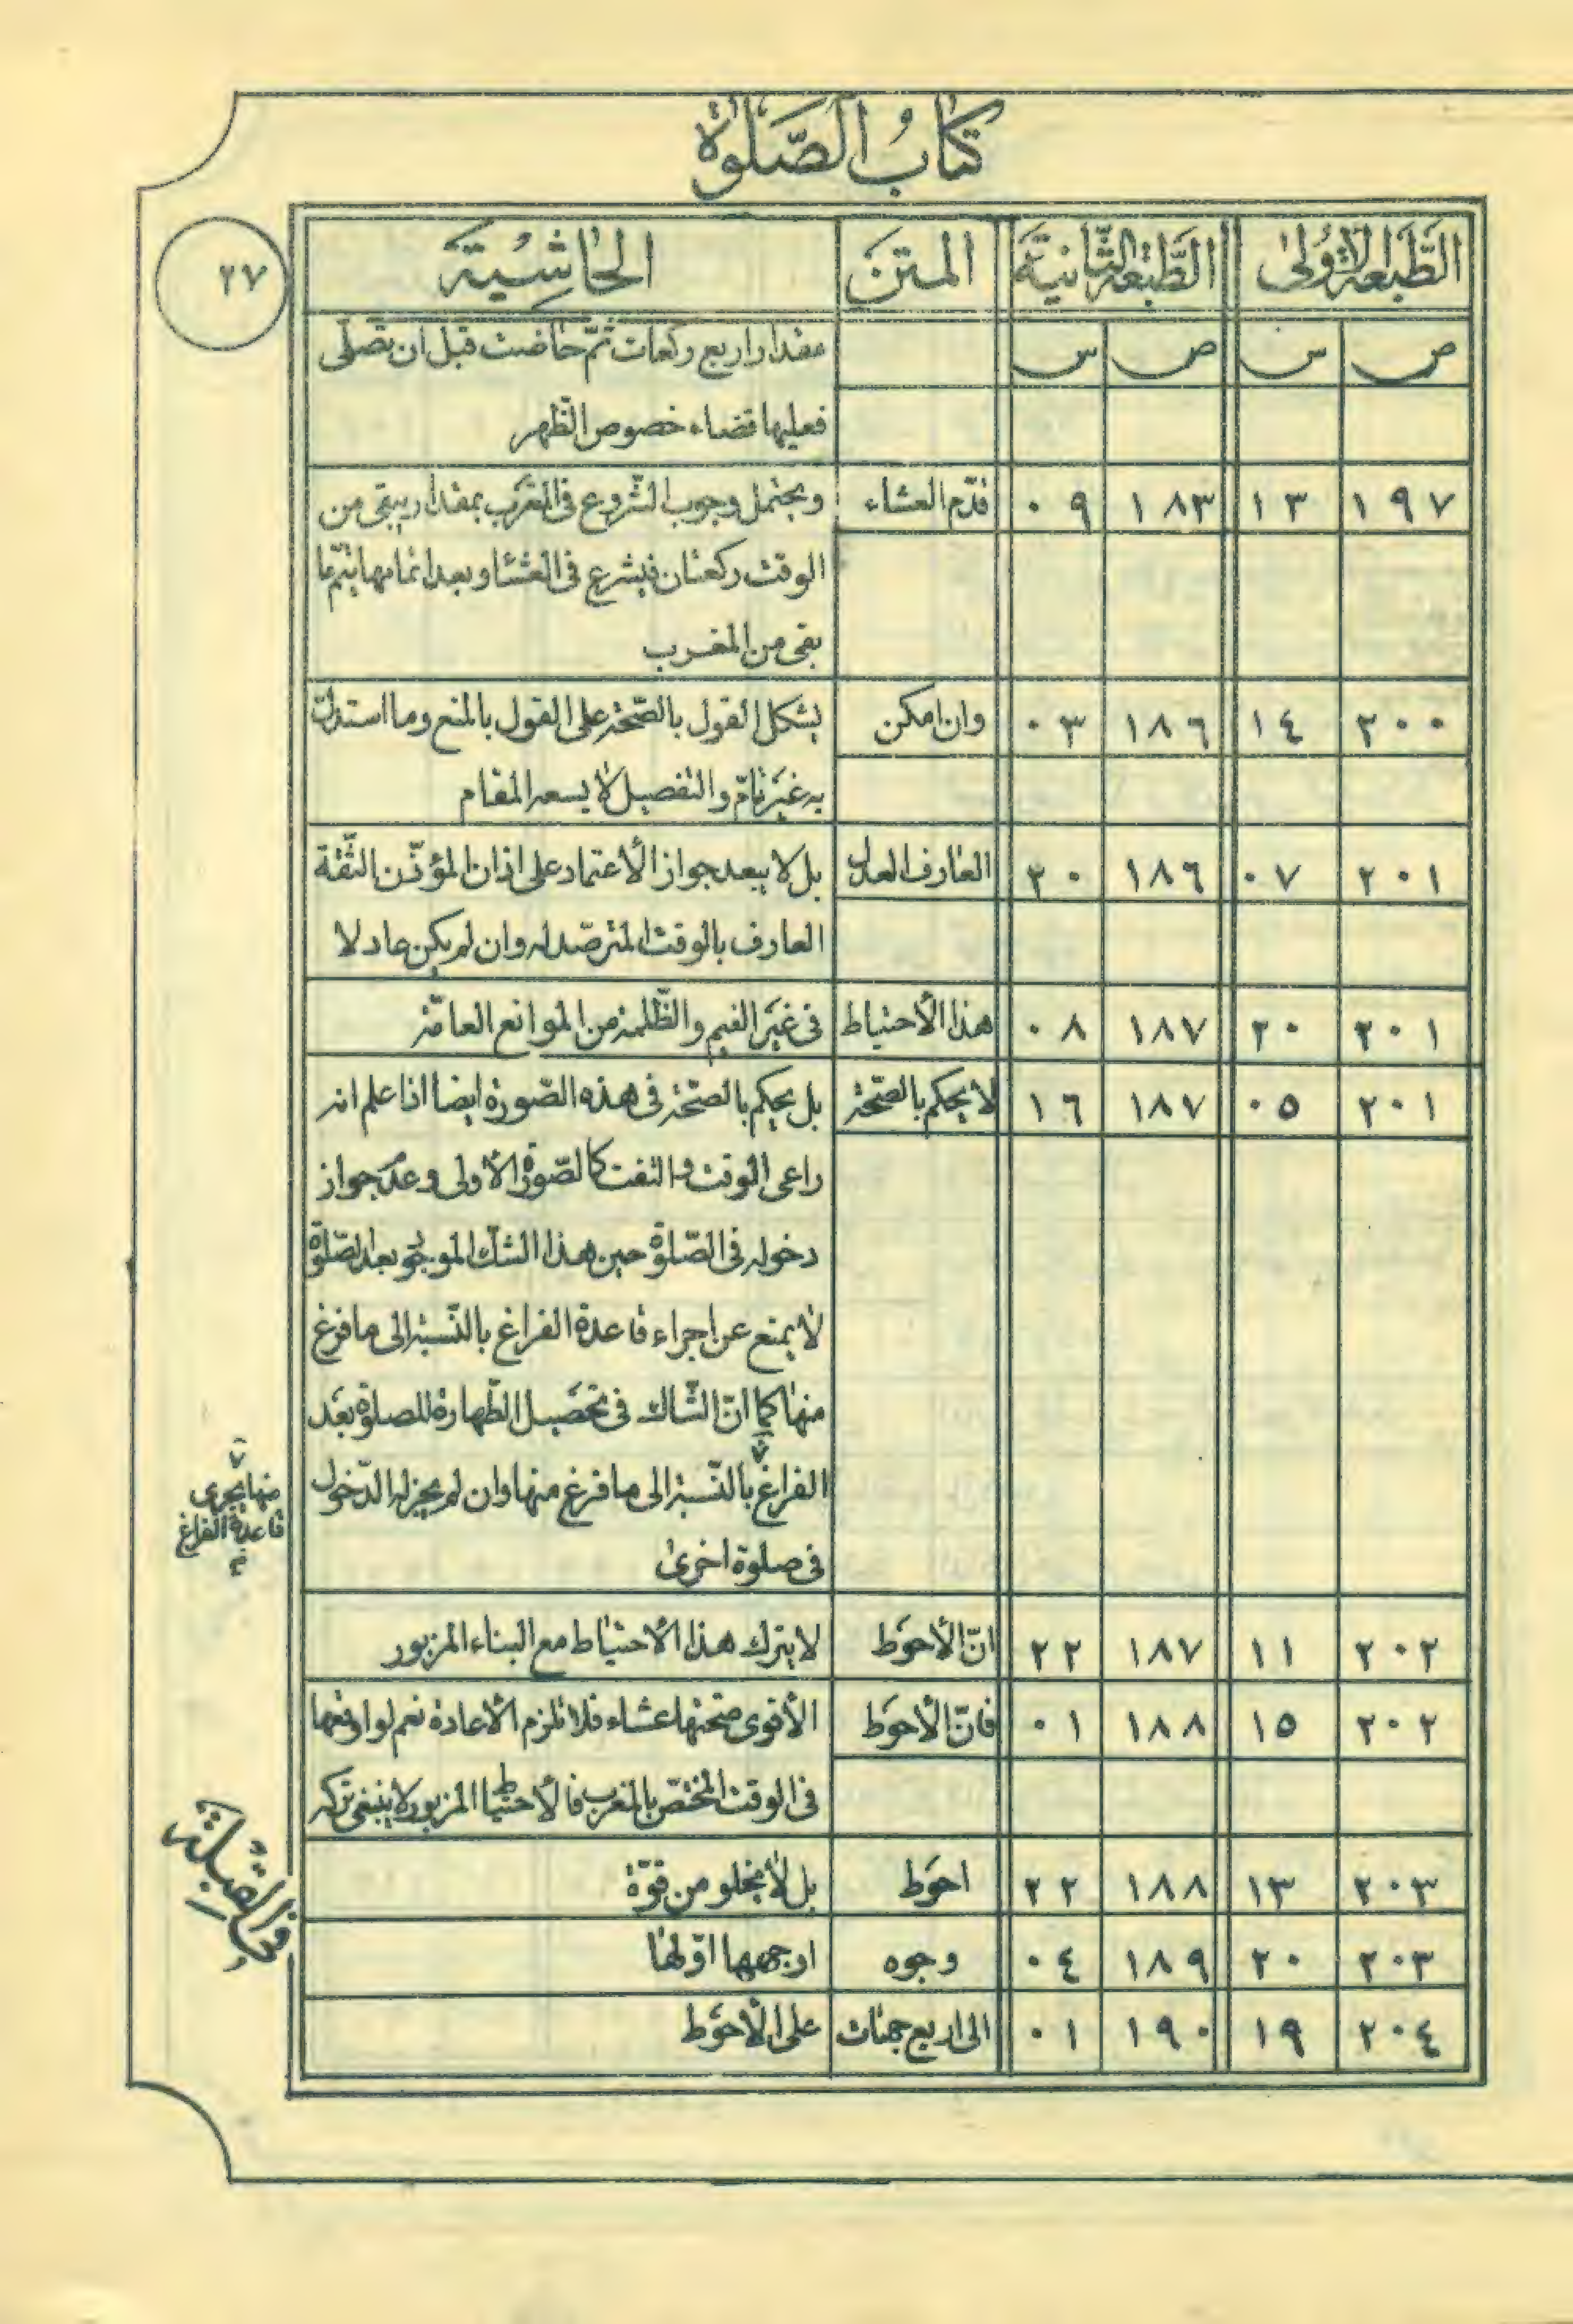 كتاب الصلوة
٢٧
الطبعة الاولى الطبعة الثانية المتن الحاشية
ص س ص س مقدار اربع ركعات ثمّ حاضت قبل ان تصلّى
فعليها قضاء خصوص الظّهر
١٩٧ ١٣ ١٨٣ ٠٩ قدّم العشاء ويحتمل وجوب الشّروع فى المغرب بمقدار يبقى من
الوقت ركعتان فيشرع فى العشاء وبعد اتمامها يتمّ ما
بقى من المغرب
٢٠٠ ١٤ ١٨٦ ٠٣ وان امكن يشكل القول بالصّحة على القول بالمنع وما استدلّ
به غير تامّ والتفصيل لا يسعه المقام
٢٠١ ٠٧ ١٨٦ ٢٠ العارف العدل بل لا يبعد جواز الأعتماد على اذان المؤذّن الثّقة
العارف بالوقت المترصّد له وان لم يكن عادلا
٢٠١ ٢٠ ١٨٧ ٠٨ هذا الأحتياط فى غير الغيم والظّلمة من الموانع العامّة
٢٠١ ٠٥ ١٨٧ ١٦ لا يحكم بالصّحة بل يحكم بالصّحة فى هذه الصّورة ايضا اذا علم انه
راعى الوقت والتفت كالصّورة الأولى وعدم جواز
دخوله فى الصّلوة حين هذا الشك الموجود بعد الصّلوة
لا يمنع عن اجراء قاعدة الفراغ بالنّسبة الى ما فرغ
منها كما انّ الشّاك فى تحصيل الطّهارة للصلوة بعد
الفراغ بالنّسبة الى ما فرغ منها وان لم يجز له الدّخول
منها يجرى
قاعدة الفراغ
فى صلوة اخرى
٢٠٢ ١١ ١٨٧ ٢٢ انّ الأحوط لا يترك هذا الأحتياط مع البناء المزبور
٢٠٢ ١٥ ١٨٨ ٠١ فانّ الأحوط الأقوى صحتها عشاء فلا تلزم الأعادة نعم لو اوقعها
فى الوقت المختصّ بالمغرب فالأحتياط المزبور لا ينبغى تركه
فى القبلة
٢٠٣ ١٣ ١٨٨ ٢٢ احوط بل لا يخلو من قوّة
٢٠٣ ٢٠ ١٨٩ ٠٤ وجوه ارجحها اوّلها
٢٠٤ ١٩ ١٩٠ ٠١ الى اربع جهات على الأحوط